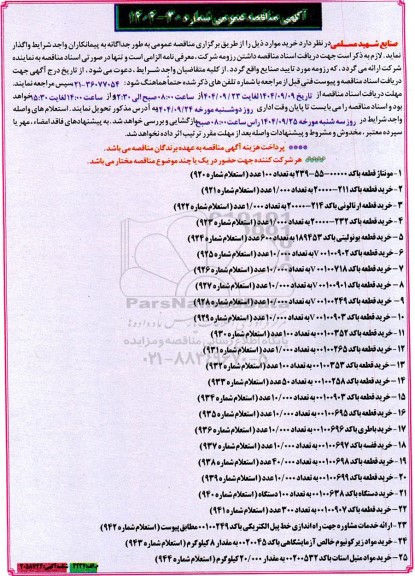 آگهی مناقصه عمومی شماره ۳۰-۱۴۰۴
صنایع شهید مسلمی در نظر دارد خرید موارد ذیل را از طریق برگزاری مناقصه عمومی به طور جداگانه به پیمانکاران واجد شرایط واگذار
نماید. لازم به ذکر است جهت دریافت اسناد مناقصه داشتن رزومه شرکت، معرفی نامه الزامی است و تنها در صورتی اسناد مناقصه به نماینده
شرکت ارائه می گردد، که رزومه مورد تایید صنایع واقع گردد. از کلیه متقاضیان واجد شرایط، دعوت می شود، از تاریخ درج آگهی جهت
دریافت اسناد مناقصه و پیوست فنی قبل از مراجعه با شماره تلفن های ذکر شده حتماً هماهنگ شود: ۳۶۰۷۷۰۵۴-۰۲۱ سپس مراجعه نمایند.
مهلت دریافت اسناد مناقصه از تاریخ ۱۴۰۴/۰۹/۱۹ لغایت ۱۴۰۴/۰۹/۲۳ از ساعت ۰۸:۰۰ صبح الی ۱۲:۳۰ و از ساعت ۱۴:۰۰ لغایت ۱۵:۳۰ خواهد
بود و اسناد مناقصه را می بایست تا پایان وقت اداری روز دوشنبه مورخه ۱۴۰۴/۰۹/۲۴ به آدرس مذکور تحویل نمایند. استعلام های واصله
واجد شرایط در روز سه شنبه مورخه ۱۴۰۴/۰۹/۲۵ راس ساعت ۰۸:۰۰ صبح بازگشایی و بررسی خواهد شد. به پیشنهادهای فاقد امضاء، مهر یا
سپرده معتبر، مخدوش و مشروط و پیشنهادات واصله بعد از مهلت مقرر ترتیب اثر داده نخواهد شد.
**** پرداخت هزینه آگهی مناقصه به عهده برندگان مناقصه می باشد.
**** هر شرکت کننده جهت حضور در یک یا چند موضوع مناقصه مختار می باشد.
۱- مونتاژ قطعه باکد به تعداد ۱۰۰ عدد ( استعلام شماره ۹۲۰)
۲- خرید قطعه باکد به تعداد ۱/۰۰۰ عدد ( استعلام شماره ۹۲۱)
۳- خرید قطعه ارتالونی باکد به تعداد ۱/۰۰۰ عدد ( استعلام شماره ۹۲۲)
۴- خرید قطعه باکد به تعداد ۱/۰۰۰ عدد ( استعلام شماره ۹۲۳)
۵- خرید قطعه یونولیتی باکد ۱۸۹۴۵۳ به تعداد ۶۰۰ عدد ( استعلام شماره ۹۲۴)
۶- خرید قطعه باکد به تعداد ۱۰/۰۰۰ عدد ( استعلام شماره ۹۲۵)
۷- خرید قطعه باکد به تعداد ۱۰/۰۰۰ عدد ( استعلام شماره ۹۲۶)
۸- خرید قطعه باکد به تعداد ۱۰/۰۰۰ عدد ( استعلام شماره ۹۲۷)
۹- خرید قطعه باکد به تعداد ۱۰/۰۰۰ عدد ( استعلام شماره ۹۲۸)
۱۰- خرید قطعه باکد به تعداد ۱۰/۰۰۰ عدد ( استعلام شماره ۹۲۹)
۱۱- خرید قطعه باکد به تعداد ۱۰۰ عدد ( استعلام شماره ۹۳۰)
۱۲- خرید قطعه باکد به تعداد ۱/۰۰۰ عدد ( استعلام شماره ۹۳۱)
۱۳- خرید قطعه باکد به تعداد ۱۰۰ عدد ( استعلام شماره ۹۳۲)
۱۴- خرید قطعه باکد به تعداد ۵۰ عدد ( استعلام شماره ۹۳۳)
۱۵- خرید قطعه باکد به تعداد ۱۰/۰۰۰ عدد ( استعلام شماره ۹۳۴)
۱۶- خرید قطعه باکد به تعداد ۱۰/۰۰۰ عدد ( استعلام شماره ۹۳۵)
۱۷- خرید باطری باکد به تعداد ۱۰/۰۰۰ عدد ( استعلام شماره ۹۳۶)
۱۸- خرید قفسه باکد به تعداد ۱۰/۰۰۰ عدد ( استعلام شماره ۹۳۷)
۱۹- خرید قطعه باکد به تعداد ۴۰/۰۰۰ عدد ( استعلام شماره ۹۳۸)
۲۰- خرید قطعه باکد به تعداد ۱۰/۰۰۰ عدد ( استعلام شماره ۹۳۹)
۲۱- خرید دستگاه باکد به تعداد ۱۰۰ دستگاه ( استعلام شماره ۹۴۰)
۲۲- خرید قطعه باکد به تعداد ۳۰۰ عدد ( استعلام شماره ۹۴۱)
۲۳- ارائه خدمات مشاوره جهت راه اندازی خط پیل الکتریکی باکد مطابق پیوست ( استعلام شماره ۹۴۲)
۲۴- خرید مواد زیرکونیوم خالص آزمایشگاهی باکد به مقدار ۸ کیلوگرم ( استعلام شماره ۹۴۳)
۲۵- خرید مواد متیل استات باکد به مقدار ۲۰/۰۰۰ کیلوگرم ( استعلام شماره ۹۴۴)
ParsNamadData
پایگاه اطلاع رسانی مناقصه و مزایده
۰۲۱-۸۸۳۴۹۶۷۰